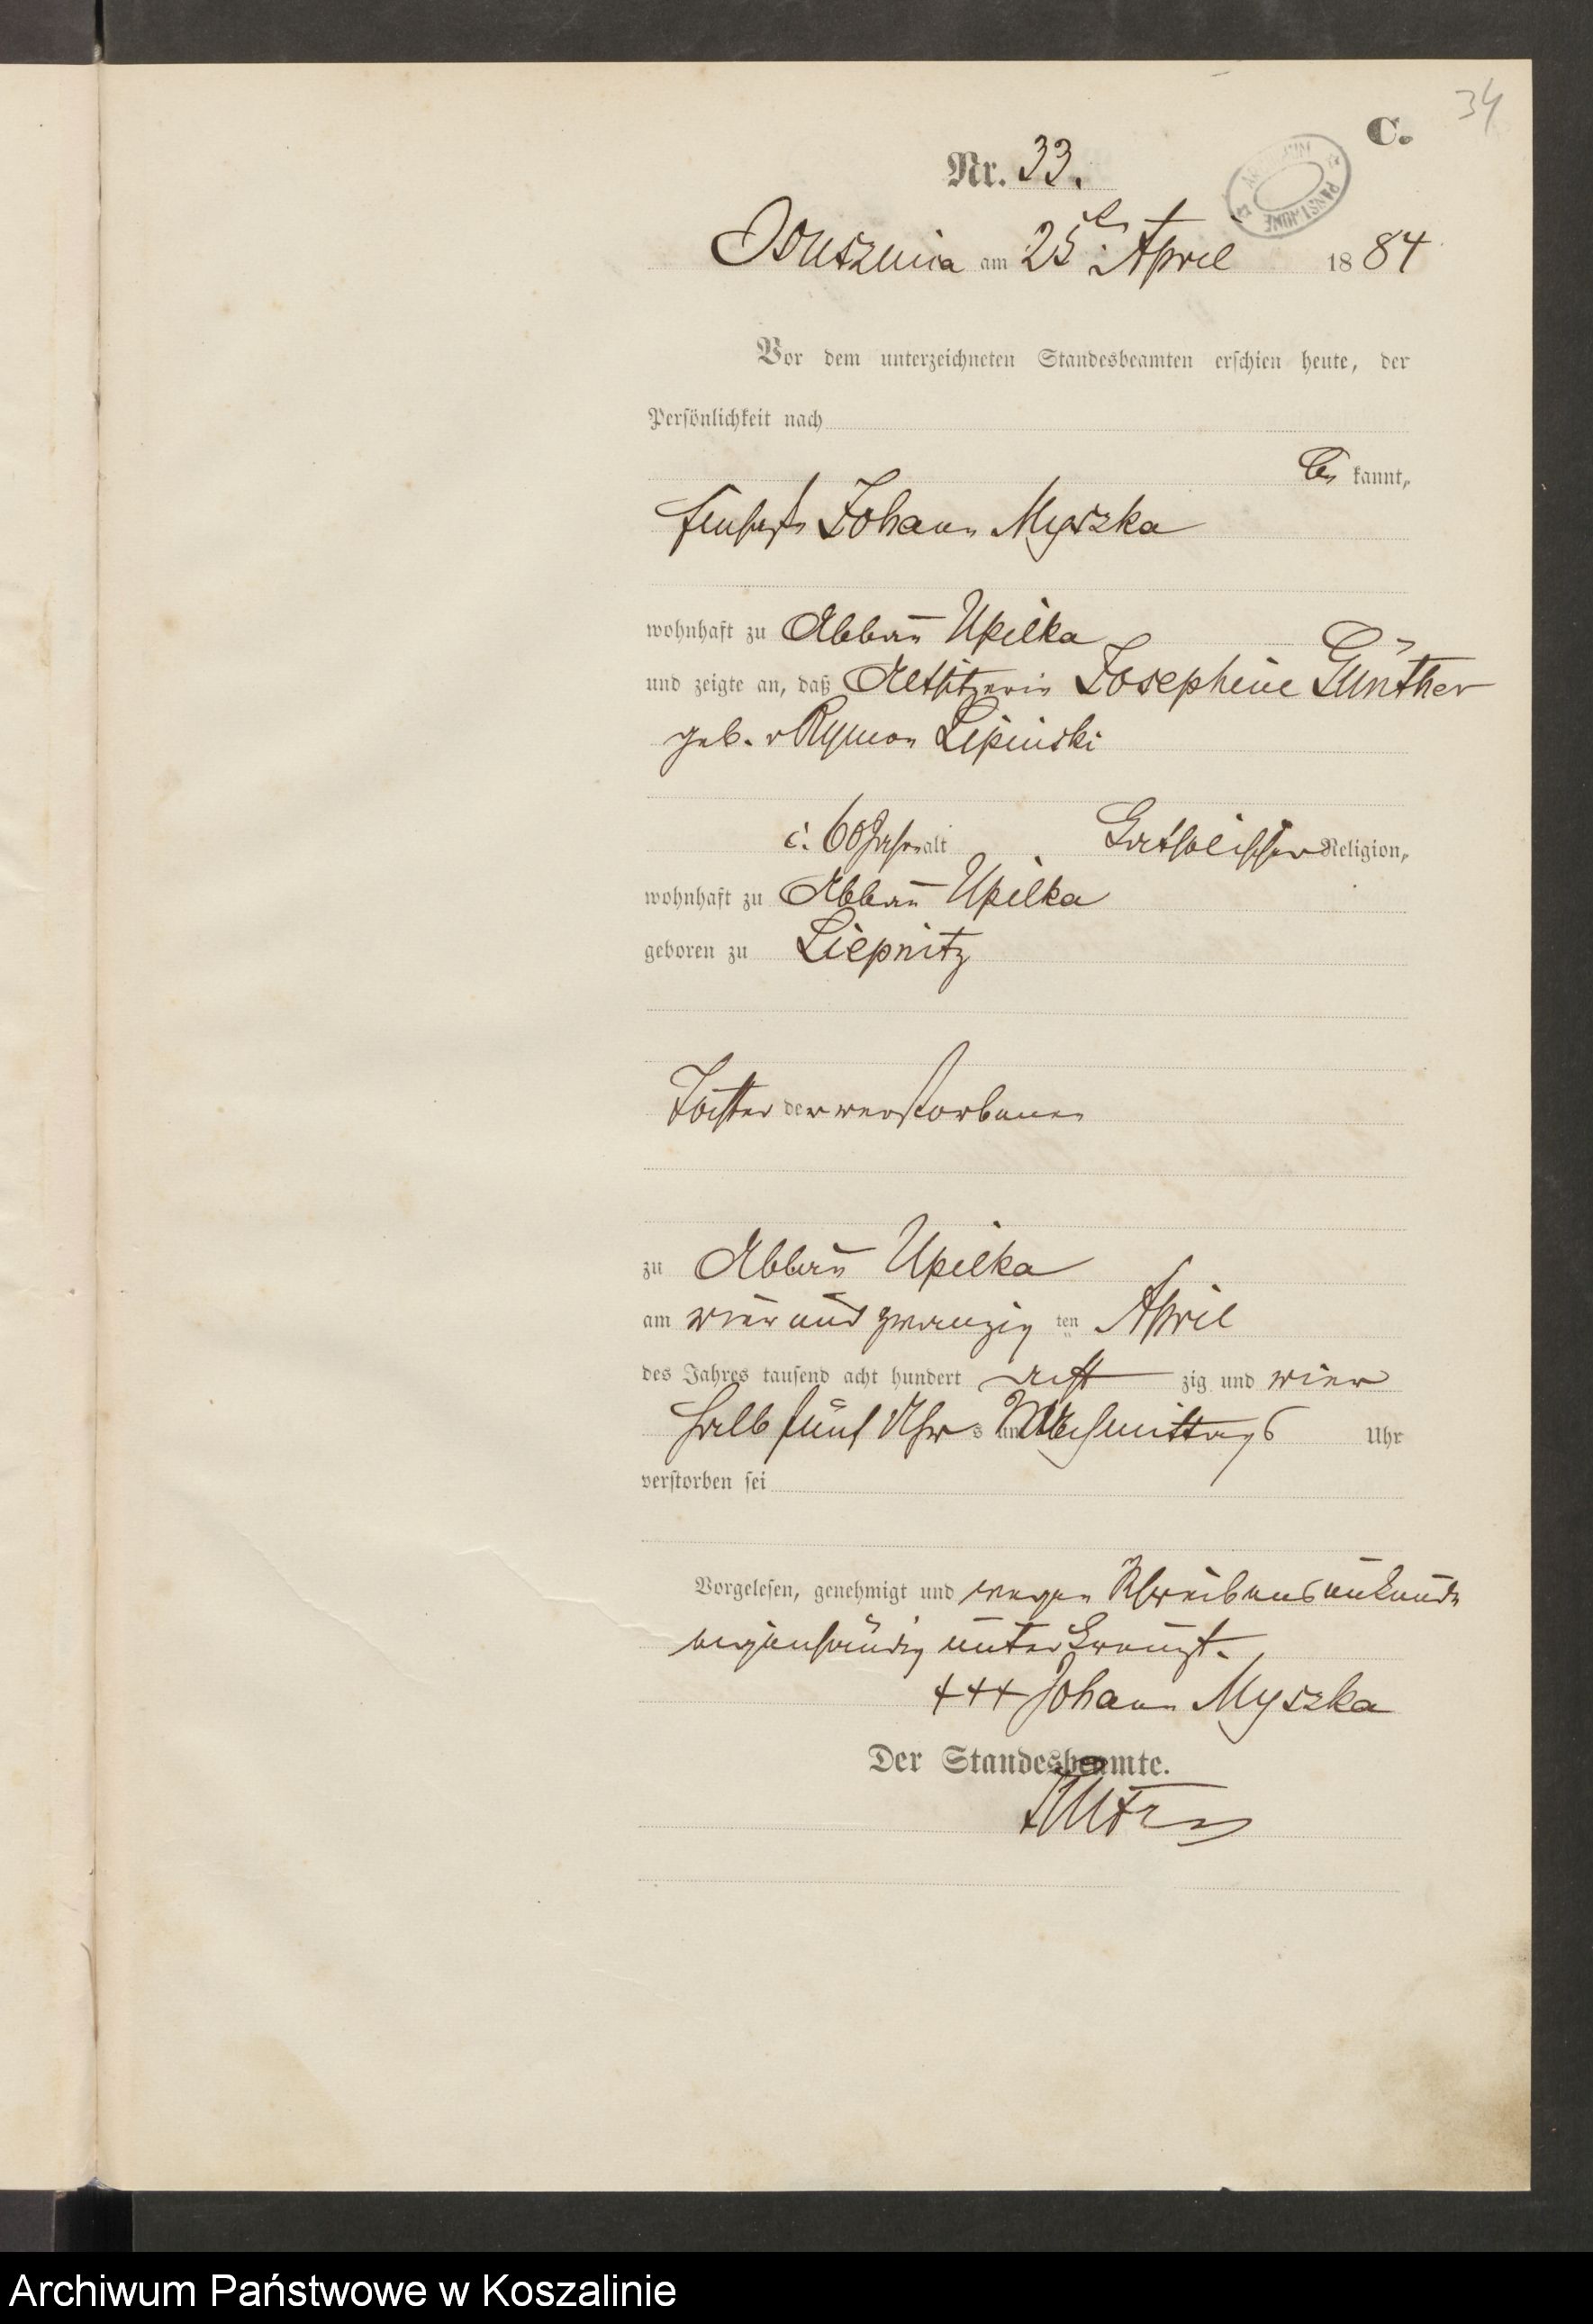 34
C.
Nr. 33.
Osusznica am 25t April 1884
Vor dem unterzeichneten Standesbeamten erschien heute, der
Persönlichkeit nach
be kannt,
Johann Myszka
wohnhaft zu Abbau Upilka
und zeigte an, daß Altsitzerin Josephine Günther
geb. v Rymon Lipinski
c. 60 Jahr alt Katholischer Religion,
wohnhaft zu Abbau Upilka
geboren zu Liepnitz
Tochter der verstorbenen
zu Abbau Upilka
am vier und zwanzig ten April
des Jahres tausend acht hundert acht zig und vier
halb fünf Uhr Nachmittags Uhr
verstorben sei
Vorgelesen, genehmigt und wegen Schreibensunkunde
eigenhändig unterkreuzt.
+++ Johann Myszka
Der Standesbeamte.
Archiwum Państwowe w Koszalinie